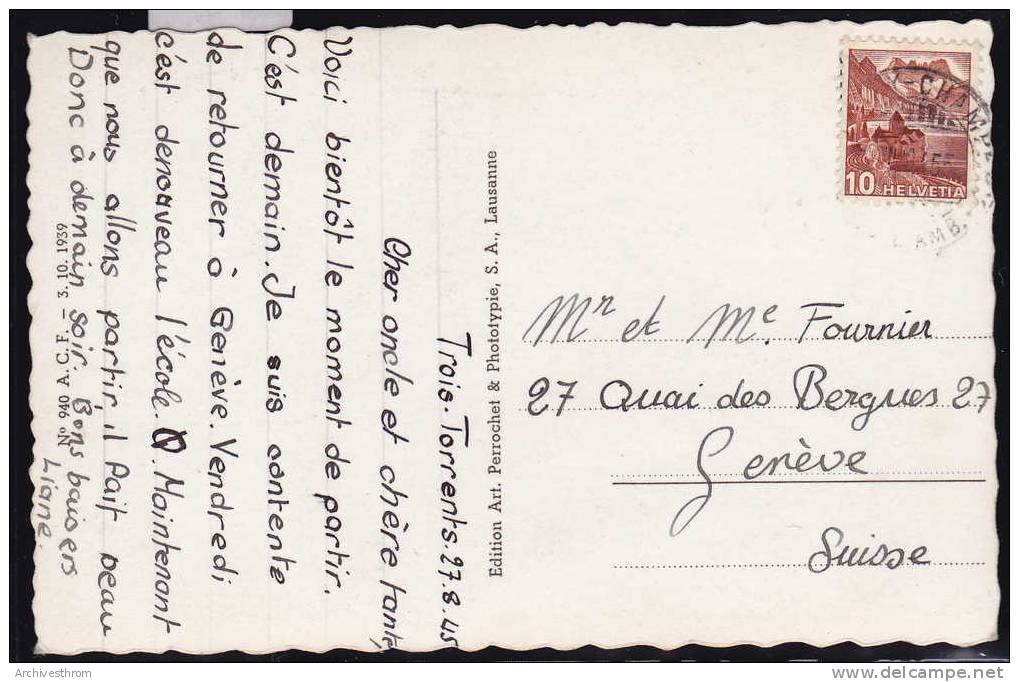 Trois-Torrents.27.8.45
Cher oncle et chère tante,
Voici bientôt le moment de partir.
C'est demain. Je suis contente
de retourner à Genève. Vendredi
c'est denouveau l'école. Maintenant
que nous allons partir, il fait beau
Donc à demain soir. Bons baisers
Liane.
Nº 940 A. C. F. — 3. 10. 1939
Edition Art. Perrochet & Phototypie, S. A., Lausanne
10 HELVETIA
AMB.
Mr et Me Fournier
27 Quai des Bergues 27
Genève
Suisse
Archivesthrom
www.delcampe.net